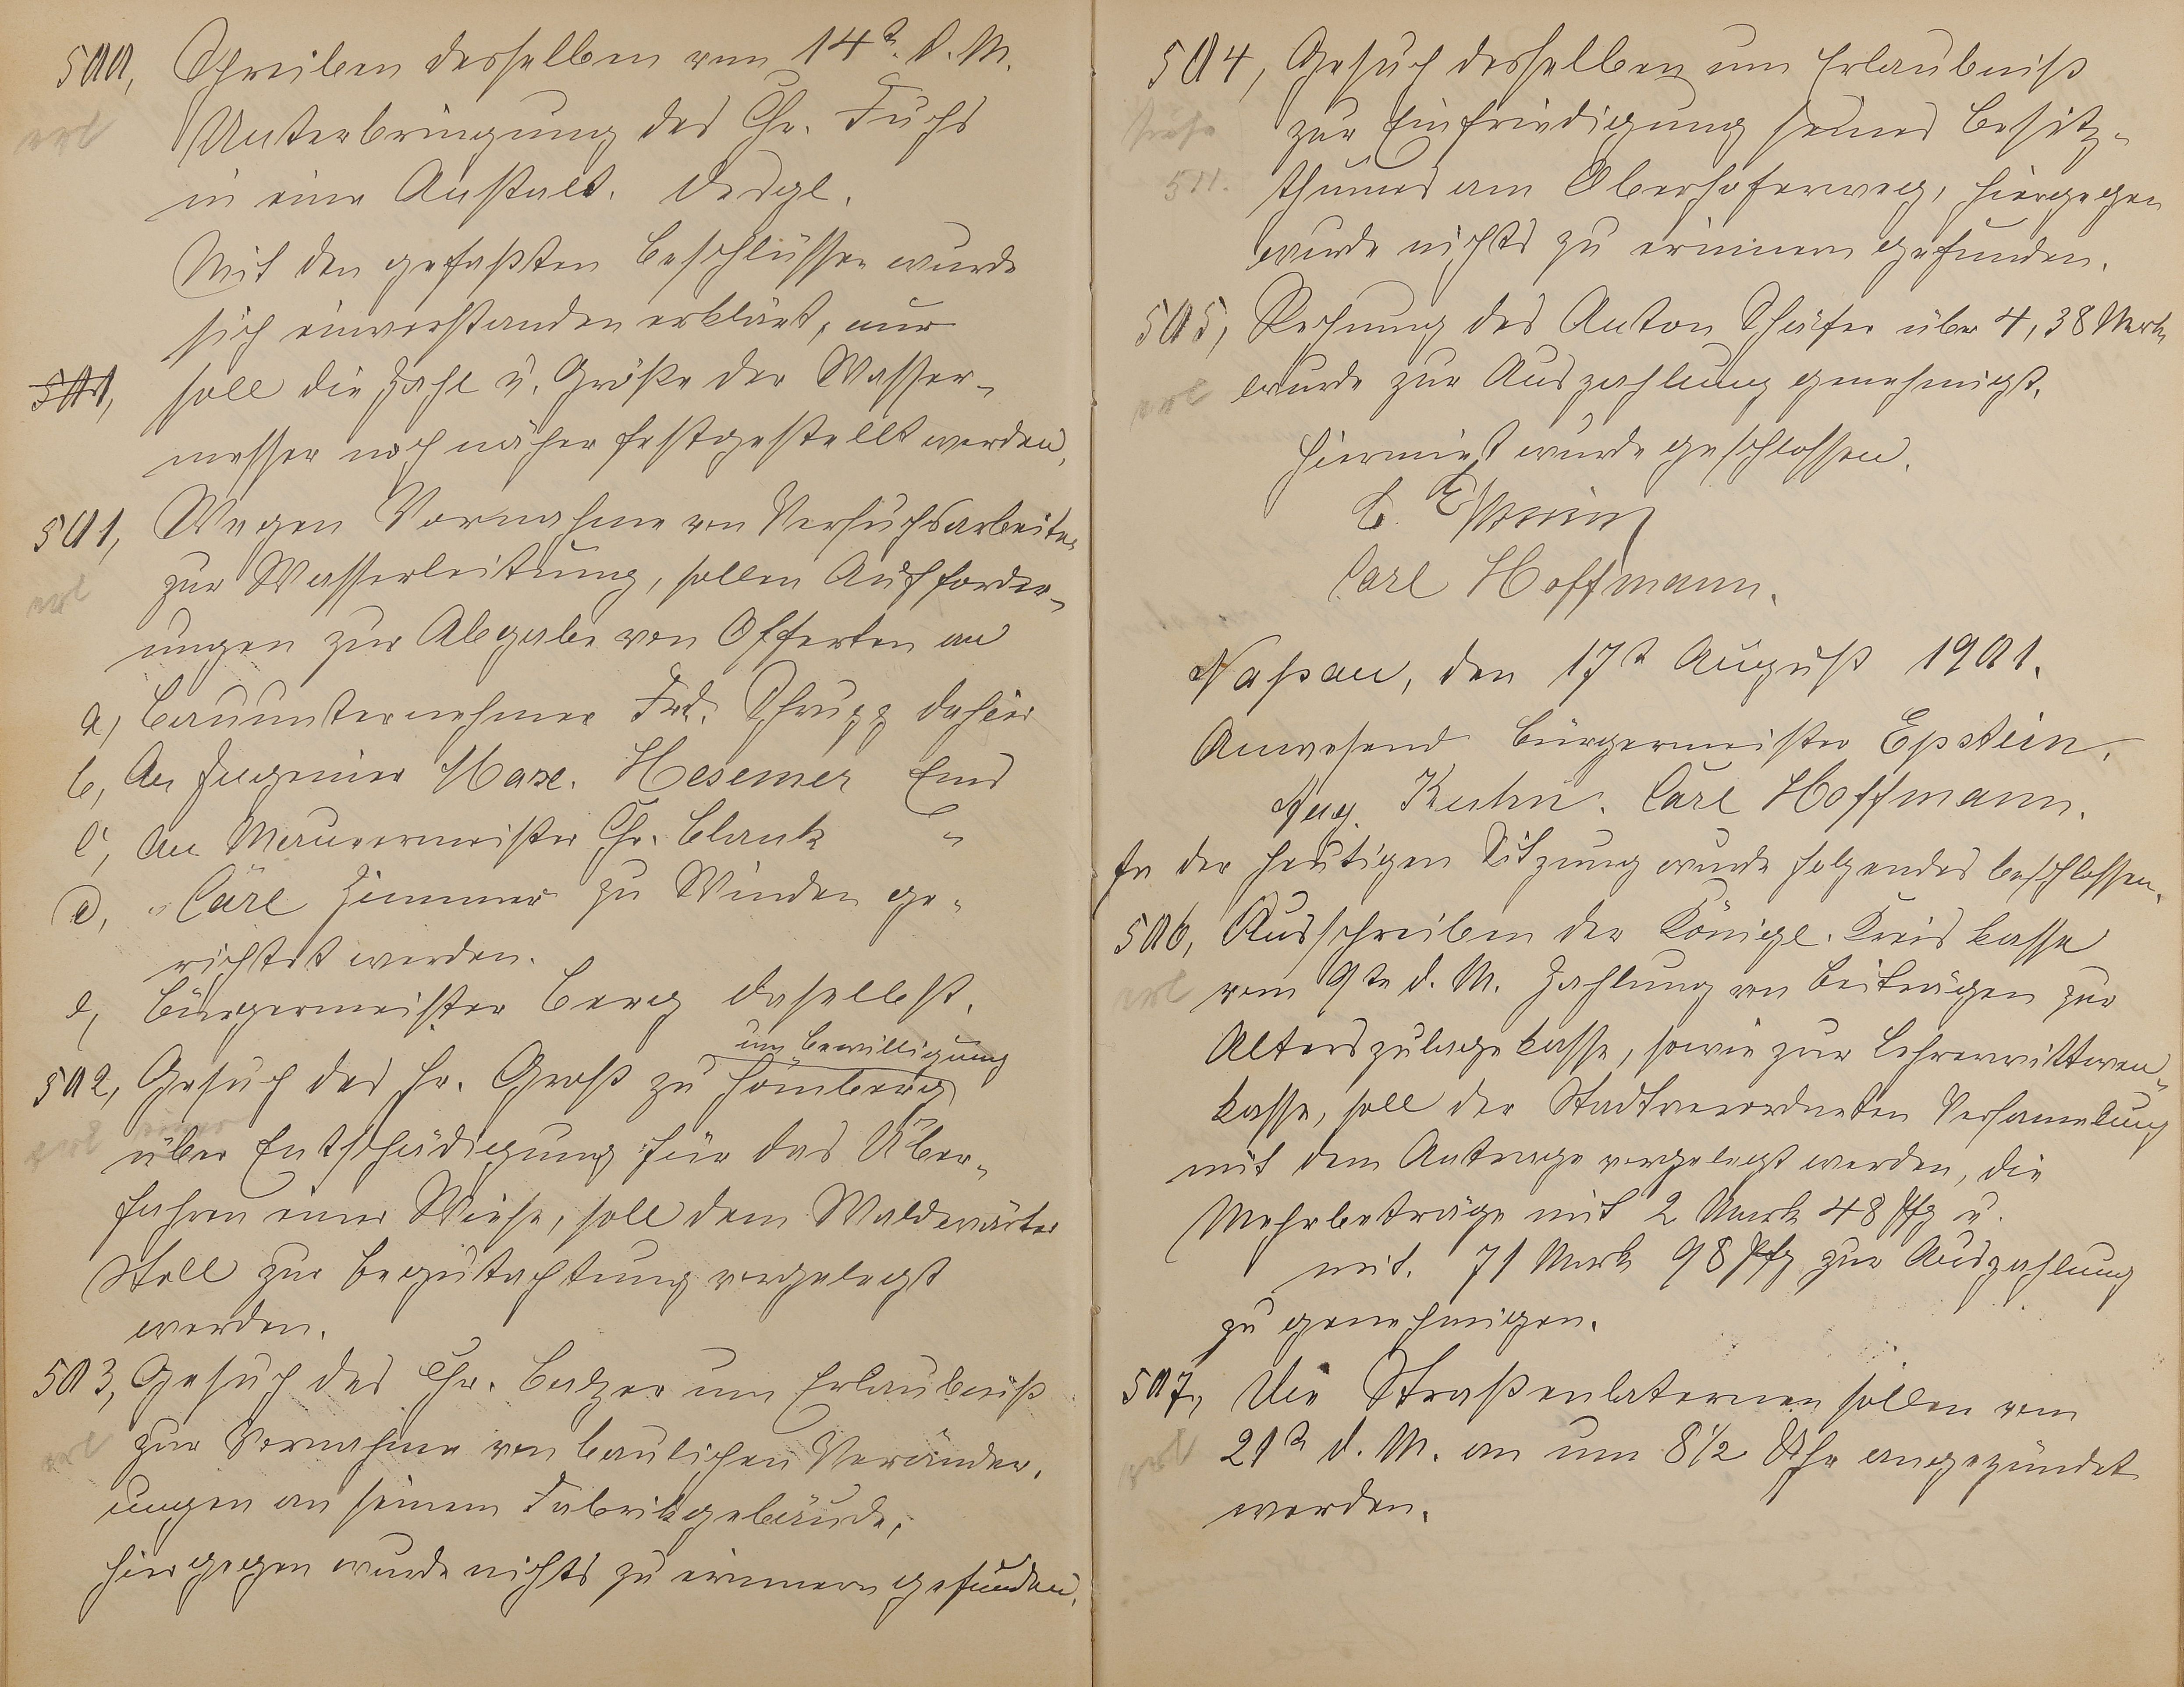 500, Schreiben desselben vom 14t. d. M.
erl
Unterbringung des Chr. Fuchs
in eine Anstalt. desgl.
Mit den gefaßten Beschlüssen wurde
sich einverstanden erklärt, nur
501, soll die Zahl u. Größe der Wasser-
messer noch näher festgestellt werden.
501, Wegen Vornahme von Versuchsarbeiten
erl
zur Wasserleitung, sollen Aufforder-
ungen zur Abgabe von Offerten an
a, Bauunternehmer Frd. Schrupp dahier
b, An Ingenier Max. Hesemer Ems
c, An Maurermeister Chr. Blank "
d, " Carl Zimmer zu Winden ge-
richtet werden.
e, Bürgermeister Berg daselbst.
um Bewilligung
502, Gesuch des Hr. Groß zu Hömberg
erl
über Entschädigung für das Über-
fahren einer Wiese, soll dem Waldwärter
Stoll zur Begutachtung vorgelegt
werden.
503, Gesuch des Chr. Balzer um Erlaubniß
erl
zur Vornahme von baulichen Veränder-
ungen an seinem Fabrikgebäude,
hiergegen wurde nichts zu erinnern gefunden.
504, Gesuch desselben um Erlaubniß
siehe
zur Einfriedigung seines Besitz-
511.
thumes am Oberhoferweg, hiergegen
wurde nichts zu erinnern gefunden.
505, Rechnung des Anton Schäfer über 4,38 Mark
erl
wurde zur Auszahlung genehmigt.
Hiermit wurde geschlossen.
Carl Hoffmann.
Naßau, den 17t August 1901.
Anwesend Bürgermeister Epstein.
Aug. Kuhn. Carl Hoffmann.
In der heutigen Sitzung wurde folgendes beschlossen.
506, Ausschreiben der Königl. Kreiskasse
erl
vom 9te d. M. Zahlung von Beiträgen zur
Alterszulagekasse, sowie zur Lehrerwittwen-
kasse, soll der Stadtverordneten Versamlung
mit dem Antrage vorgelegt werden, die
Mehrbeträge mit 2 Mark 48 Pfg u.
mit. 71 Mark 98 Pfg zur Auszahlung
zu genehmigen.
507, Die Straßenlaternen sollen vom
erl
21t d. M. an um 8 1/2 Uhr angezündet
werden.